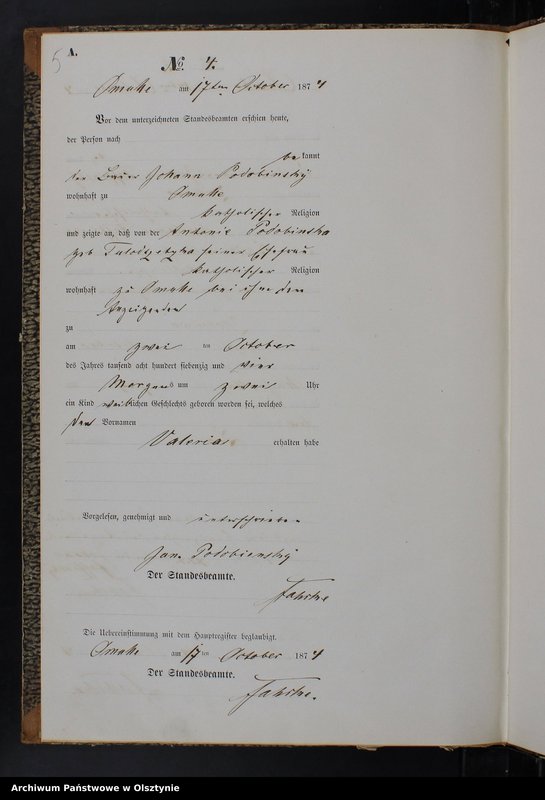 5 A.
№ 4.
Omulle am 17ten October 1874
Vor dem unterzeichneten Standesbeamten erschien heute,
der Person nach
bekannt
der Bauer Johann Podobinsky
wohnhaft zu Omulle
katholischer Religion
und zeigte an, daß von der Antonie Podobinska
geb seiner Ehefrau
katholischer Religion
wohnhaft zu Omulle bei ihm dem
Anzeigenden
zu
am zwei ten October
des Jahres tausend acht hundert siebenzig und vier
Morgens um zwei Uhr
ein Kind weiblichen Geschlechts geboren worden sei, welches
den Vornamen
Valeria erhalten habe
Vorgelesen, genehmigt und unterschrieben
Jan Podobienský
Der Standesbeamte.
Die Uebereinstimmung mit dem Hauptregister beglaubigt.
Omulle am 17ten October 1874
Der Standesbeamte.
Archiwum Państwowe w Olsztynie